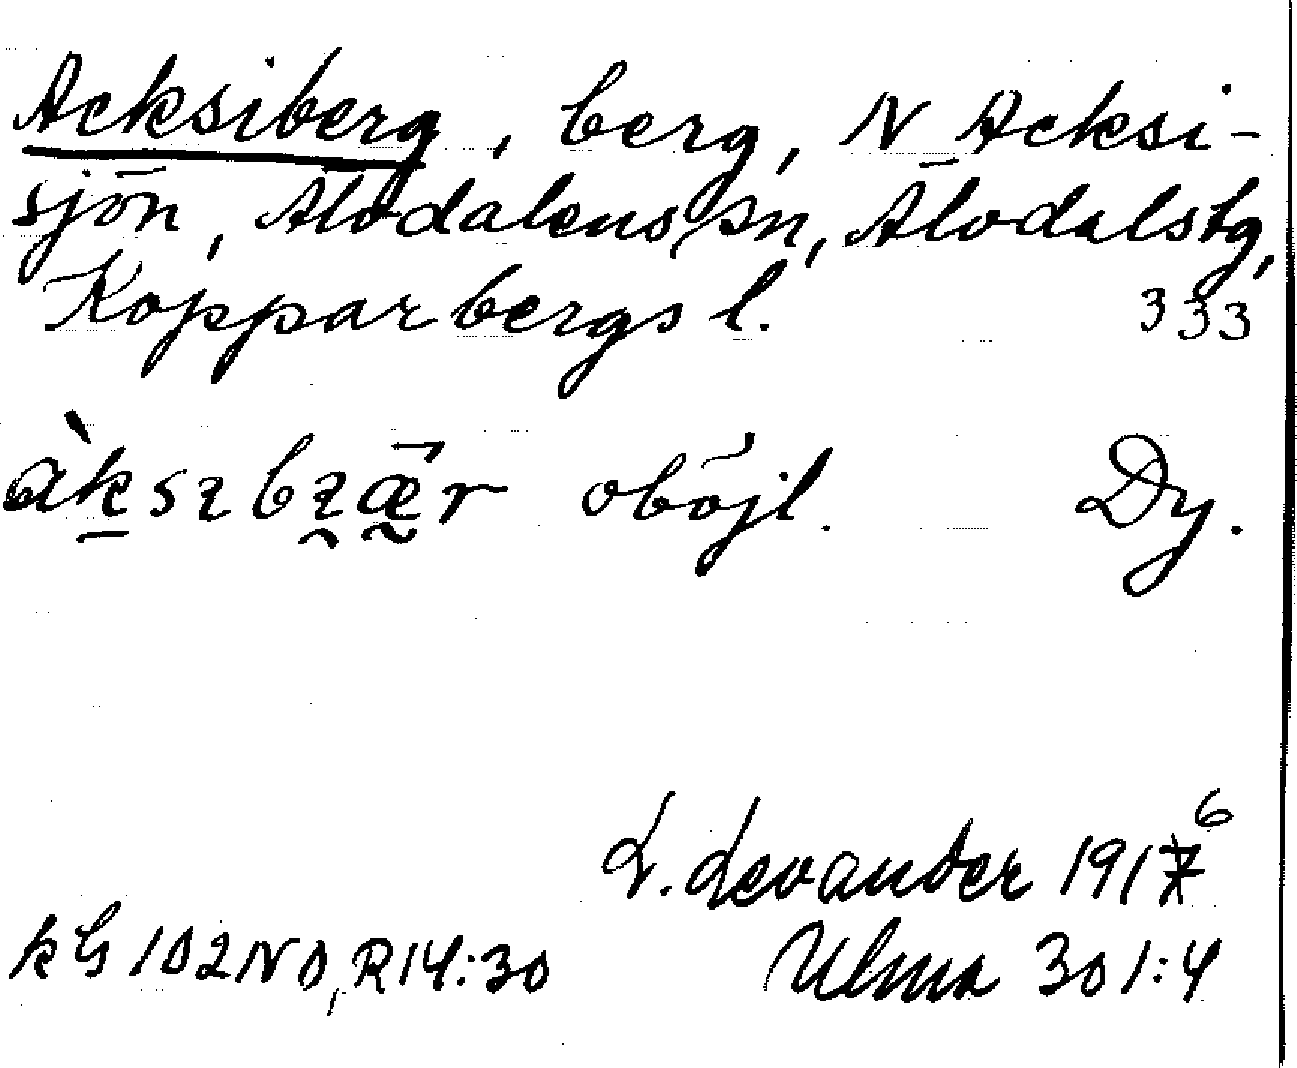 Acksiberg, berg, N Acksi-
sjön, Älvdalens sn, Älvdalstg,
Kopparbergs l. 333
àksɩbɩær oböjl. Dy.
L. Levander 1916
kG 102NO, R14:30 Ulma 301:4